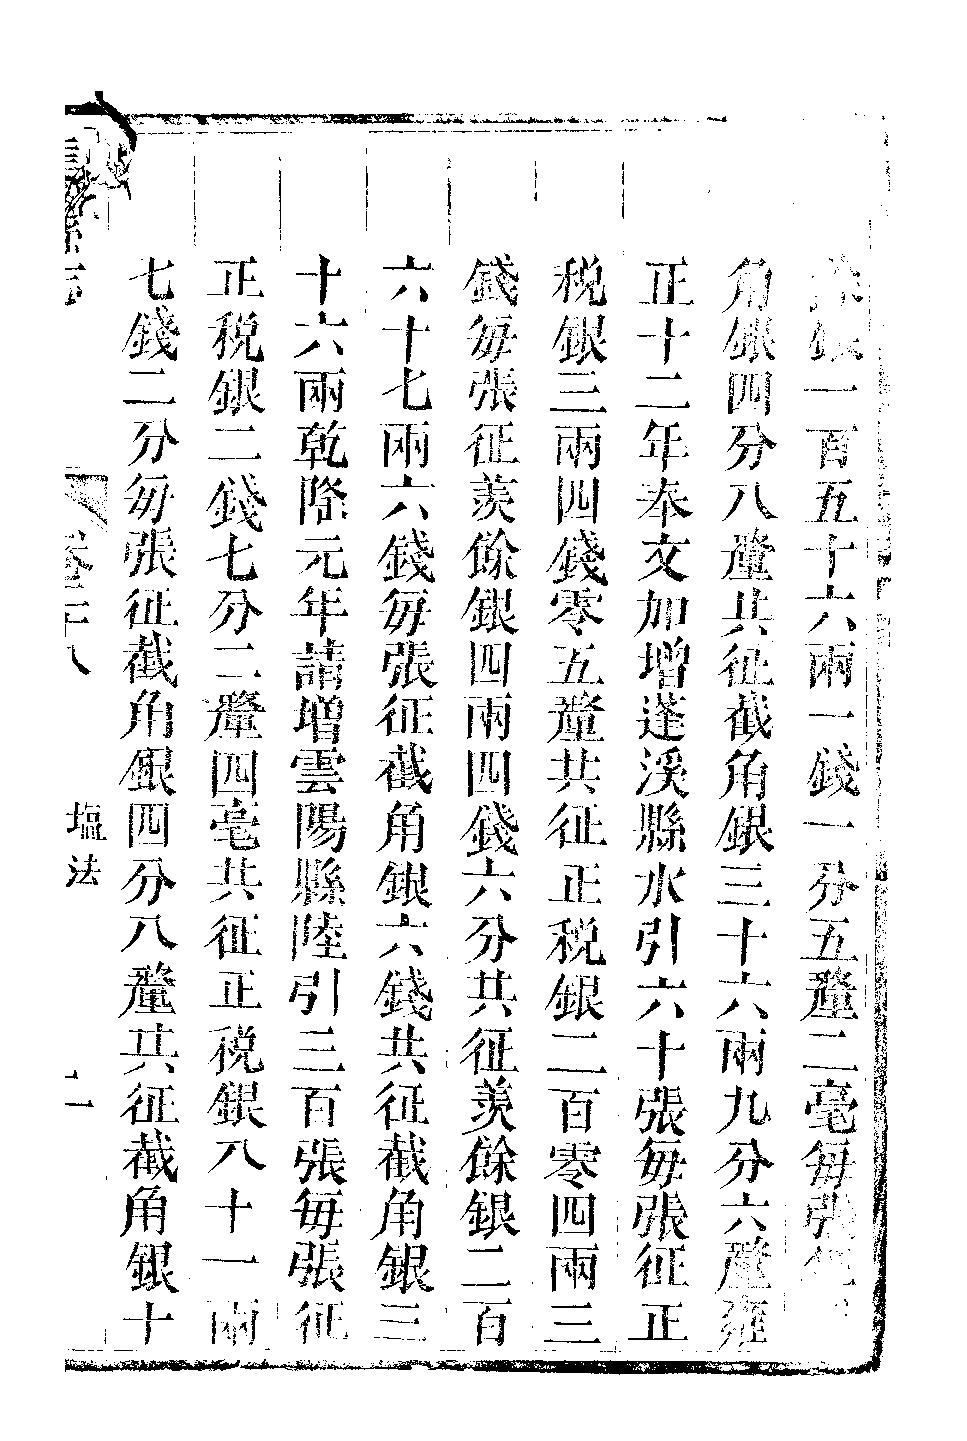 銀一百五十六兩一錢一分五釐二毫每張征
角銀四分八釐共征截角銀三十六兩九分六釐雍
正十二年奉文加增蓬溪縣水引六十張每張征正
税銀三兩四錢零五釐共征正税銀二百零四兩三
錢每張征羨餘銀四兩四錢六分共征羨餘銀二百
六十七兩六錢每張征截角銀六錢共征截角銀三
十六兩乾隆元年請增雲陽縣陸引三百張每張征
正税銀二錢七分二釐四毫共征正税銀八十一兩
七錢二分每張征截角銀四分八釐共征截角銀十
縣志
卷二十八
塩法